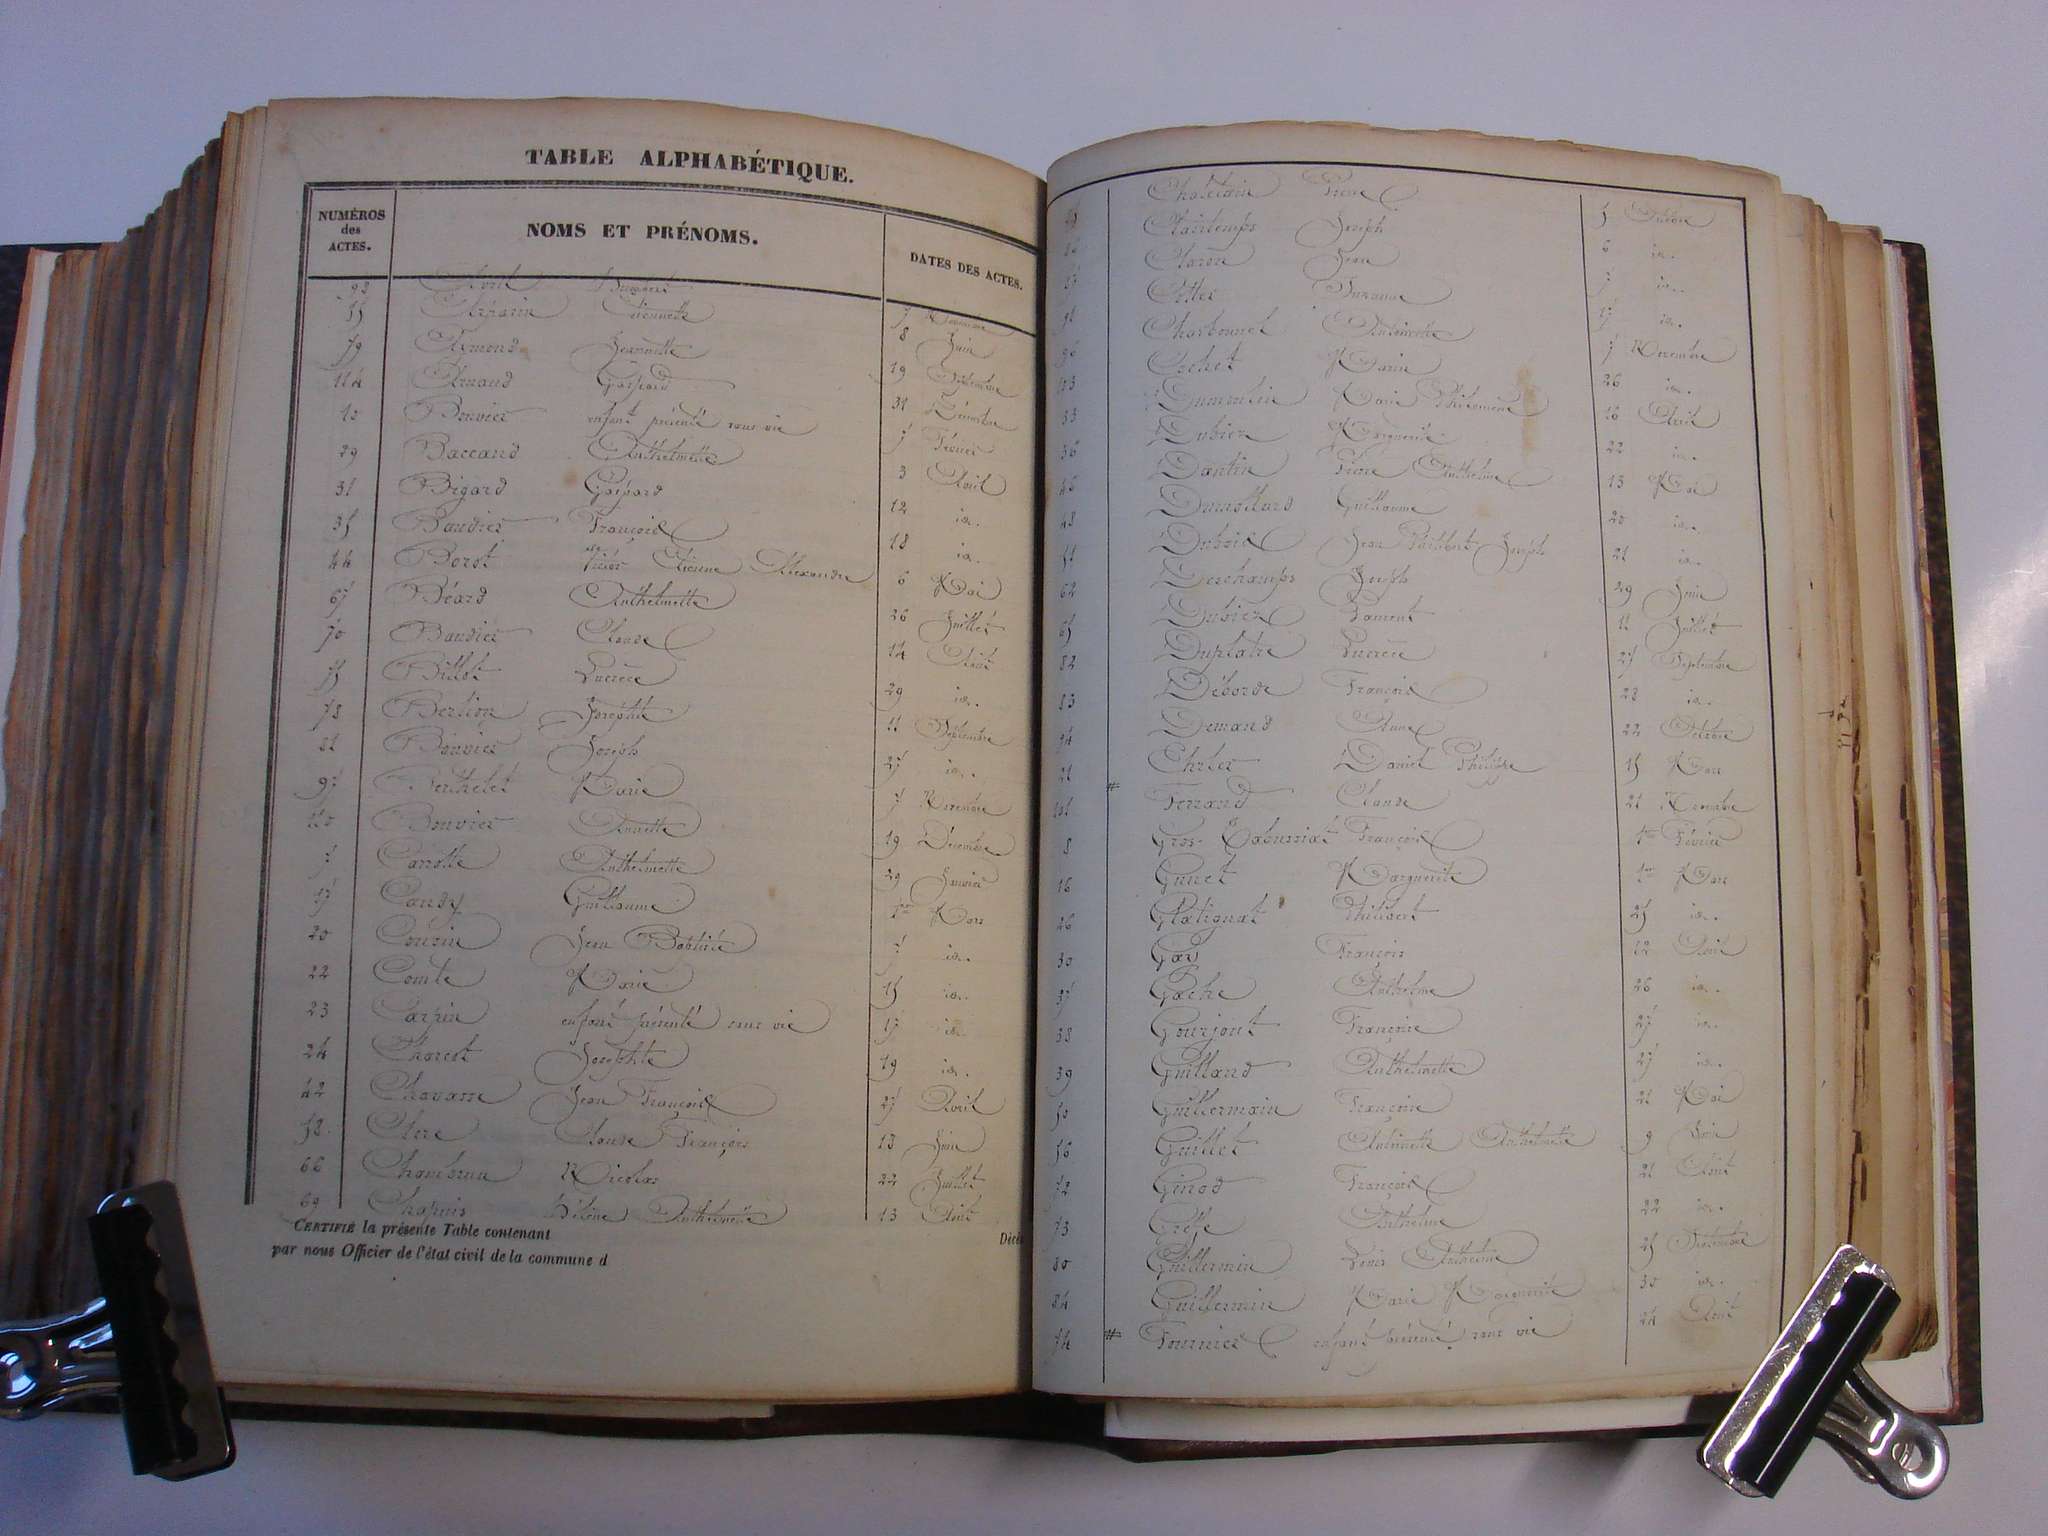 TABLE ALPHABÉTIQUE.
NUMÉROS des ACTES. NOMS ET PRÉNOMS. DATES DES ACTES.
92 Avril 7 Novembre
Etiennette 8 Juin
79 Aimond Jeannette 19 Septembre
124 Arnaud Gaspard 31 Décembre
12 Bouvier enfant présenté sans vie 7 Février
29 Baccand Anthelmette 3 Avril
31 Bigard Gaspard 12 id.
35 Baudier François 18 id.
44 Borot Etienne Alexandre 6 Mai
67 Béard Anthelmette 26 Juillet
70 Baudier Claude 14 Août
75 Billot Lucrèce 29 id.
78 Berlion Josephte 11 Septembre
81 Bouvier Joseph 27 id.
97 Berthelet Marie 7 Novembre
120 Bouvier Annette 19 Décembre
7 Carrotte Anthelmette 29 Janvier
17 Candy Guillaume 1er Mars
20 Cousin Jean Baptiste 7 id.
22 Comte Marie 15 id.
23 Carpin enfant présenté sans vie 17 id.
24 Charcot Josephte 19 id.
42 Chavann Jean François 27 Avril
58 Clerc Claude François 13 Juin
66 Nicolas 22 Juillet
69 Chapuis Hélène Anthelmette 13 Août
CERTIFIÉ la présente Table contenant Décès
par nous Officier de l'état civil de la commune d
Chatelain Pierre 5 Octobre
Clairtemps Joseph 6 id.
Claron Jean 7 id.
Cottet Suzanne 17 id.
Charbonnet Antoinette 7 Novembre
Cochet Marie 26 id.
Dumoulin Marie Philomène 16 Avril
33 Dubiez Marguerite 22 id.
36 Dantin Pierre Anthelme 13 Mai
46 Dumollard Guillaume 20 id.
48 Dubois Jean Philibert Joseph 21 id.
51 Deschamps Joseph 29 Juin
62 Dubiez Laurent 11 Juillet
65 Duplatre Lucrèce 27 Septembre
82 Déborde François 28 id.
83 Demand Anne 22 Octobre
94 Ehrler Daniel Philippe 15 Mars
21 # Ferrand Claude 21 Novembre
101 Gros- François 1er Février
8 Gunet Marguerite 1er Mars
16 Glatignat Philibert 25 id.
26 Gad François 12 Avril
30 Gache Anthelme 26 id.
37 Gourjout Françoise 27 id.
38 Guilland Anthelmette 27 id.
39 Guillermain Françoise 21 Mai
50 Guillet Antoinette Anthelmette 9 Juin
56 Ginod François 21 Août
72 Greffe Anthelme 22 id.
73 Guillermin Louis Anthelme 25 Septembre
80 Guillermin Marie Marguerite 30 id.
84 # Fournier enfant présenté sans vie 24 Août
74